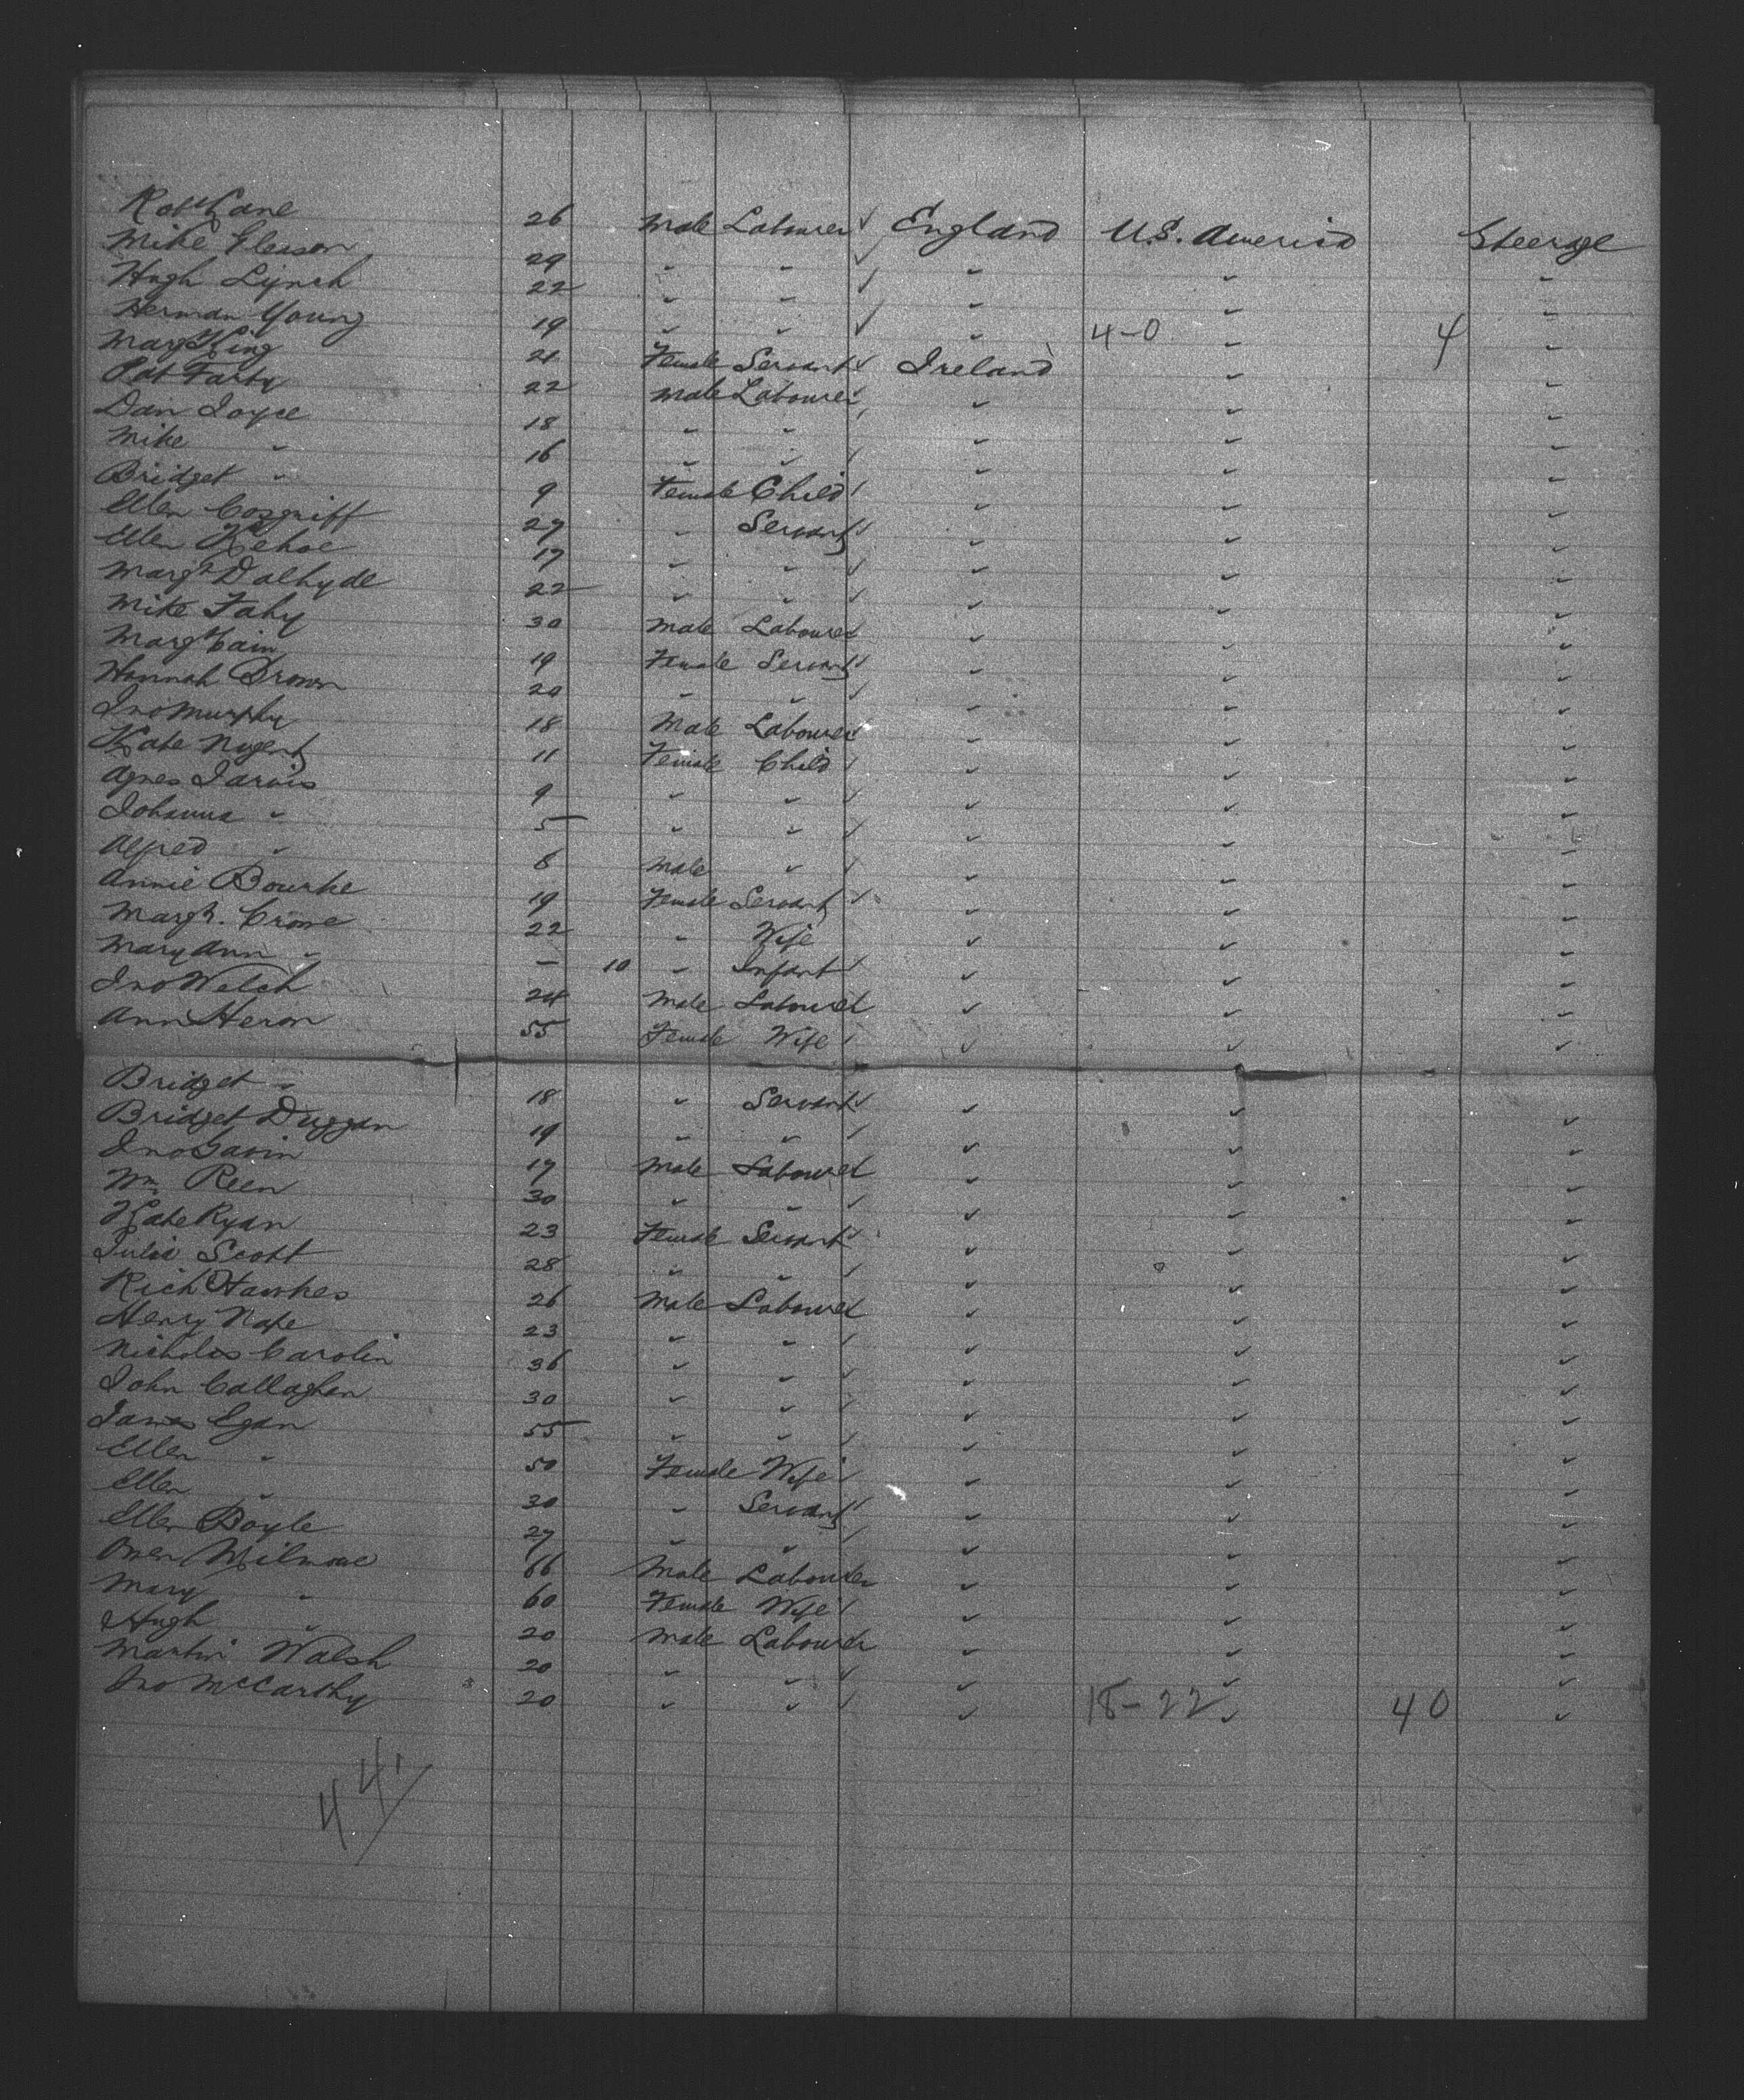 Robt Lane 26 Male Labourer England U.S. America Steerage
Mike Gleason 29 " " " " "
Hugh Lynch 22 " " " " "
Herman Young 19 " " " 4-0 " 4 "
Margt King 21 Female Servant Ireland " "
Pat Farty 22 Male Labourer " " "
Dan Joyce 18 " " " " "
Mike " 16 " " " " "
Bridget " 9 Female Child " " "
Ellen Cosgriff 27 " Servant " " "
Ellen Kehoe 17 " " " " "
Margt Dalhyde 22 " " " " "
Mike Fahy 30 Male Labourer " " "
Margt Cain 19 Female Servant " " "
Hannah Brown 20 " " " " "
Jno Murphy 18 Male Labourer " " "
Kate Nugent 11 Female Child " " "
Agnes Jarvis 9 " " " " "
Johanna " 5 " " " " "
Alfred " 8 Male " " " "
Annie Bourke 19 Female Servant " " "
Margt. Crowe 22 " Wife " " "
Mary Ann " - 10 " Infant " " "
Jno Welch 24 Male Labourer " " "
Ann Heron 55 Female Wife " " "
Bridget " 18 " Servant " " "
Bridget Duggan 19 " " " " "
Jno Gavin 17 Male Labourer " " "
Wm Reen 30 " " " " "
Kate Ryan 23 Female Servant " " "
Julia Scott 28 " " " " "
Rich Hawkes 26 Male Labourer " " "
Henry 23 " " " " "
Nicholas Carolin 36 " " " " "
John Callaghan 30 " " " " "
James Egan 55 " " " " "
Ellen " 50 Female Wife " " "
Ellen " 30 " Servant " " "
Ellen Boyle 27 " " " " "
Owen Wilmore 66 Male Labourer " " "
Mary " 60 Female Wife " " "
Hugh " 20 Male Labourer " " "
Martin Walsh 20 " " " " "
Jno McCarthy 20 " " " 18-22 " 40 "
44